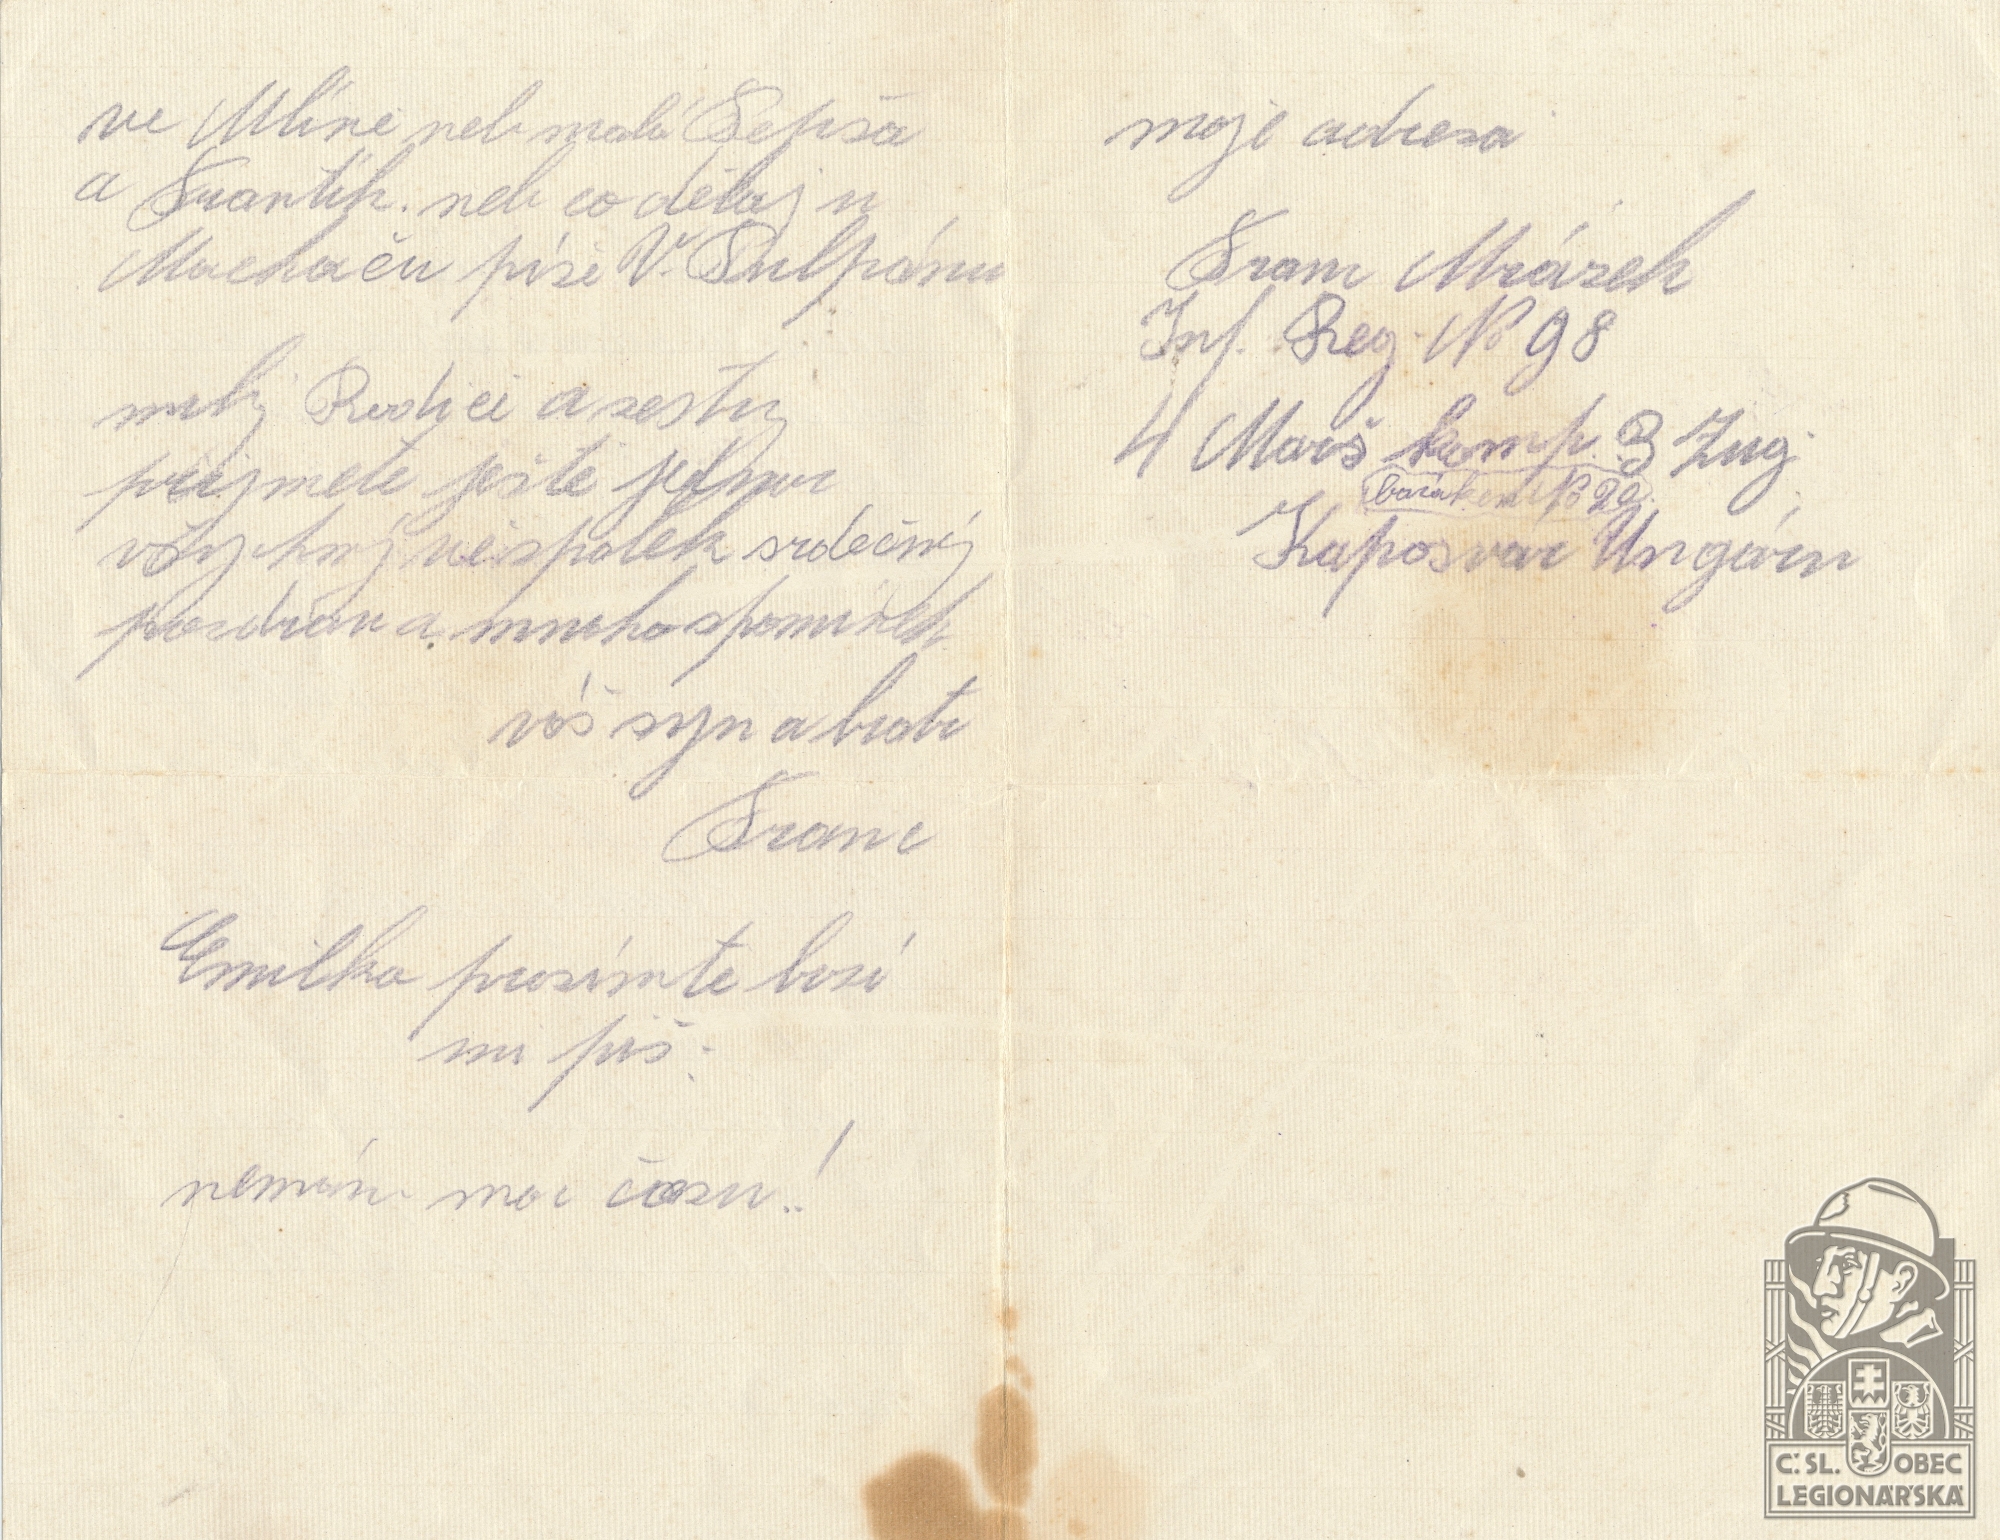 ve Mlíně neb malá Pepša
a Frantík. neb co dělaj u
Machačů píše V. Pulpánu
milý Rodiče a sestry
přijmete ješte jednou
všychný vespolek srdečný
pozdrav a mnoho spomínek
váš syn a bratr
Franc
Emilko prosímte brzi
mi piš.
nemám moc času.!
moje adresa
Franc Mrázek
Inf. Reg. No 98
4 Marš komp. 3 Zug.
baraken No 29.
Kaposvár Ungarn
Č.SL. OBEC
LEGIONÁŘSKÁ